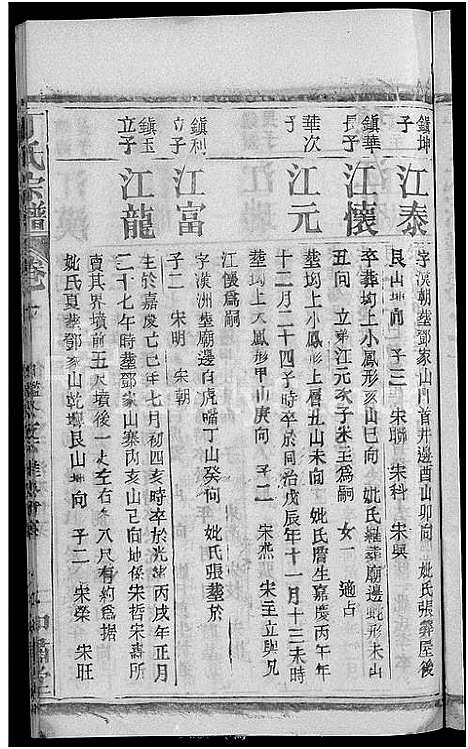 鎮坤子
江泰
字漢朝塟鄧家山門首井邊酉山卯向 妣氏張葬屋後
艮山坤向 子三 宋聯 宋科 宋與
鎮華長子
江懷
卒葬均上小鳳形亥山巳向 妣氏羅葬廟邊蛇形未山
丑向 立弟江元次子宋主為嗣 女一 適占
華次子
江元
塟均上小鳳形上層丑山未向 妣氏 生嘉慶丙午年
十二月二十四子時卒於同治戊辰年十一月十三未時
塟均上大鳳形甲山庚向 子二 宋燕 宋主立與兄
江懷為嗣
鎮利立子
江富
字漢洲塟廟邊白虎嘴丁山癸向 妣氏張塟於
子二 宋明 宋朝
鎮玉立子
江龍
生於嘉慶乙巳年七月初四亥時卒於光緒丙戌年正月
二十七午時塟鄧家山寨丙亥山巳向地係宋哲宋壽所
賣其界墳前五尺墳後一丈左右 八尺有約為據
妣氏夏塟鄧家山乾 艮山坤向 子二 宋榮 宋旺
丁氏宗譜